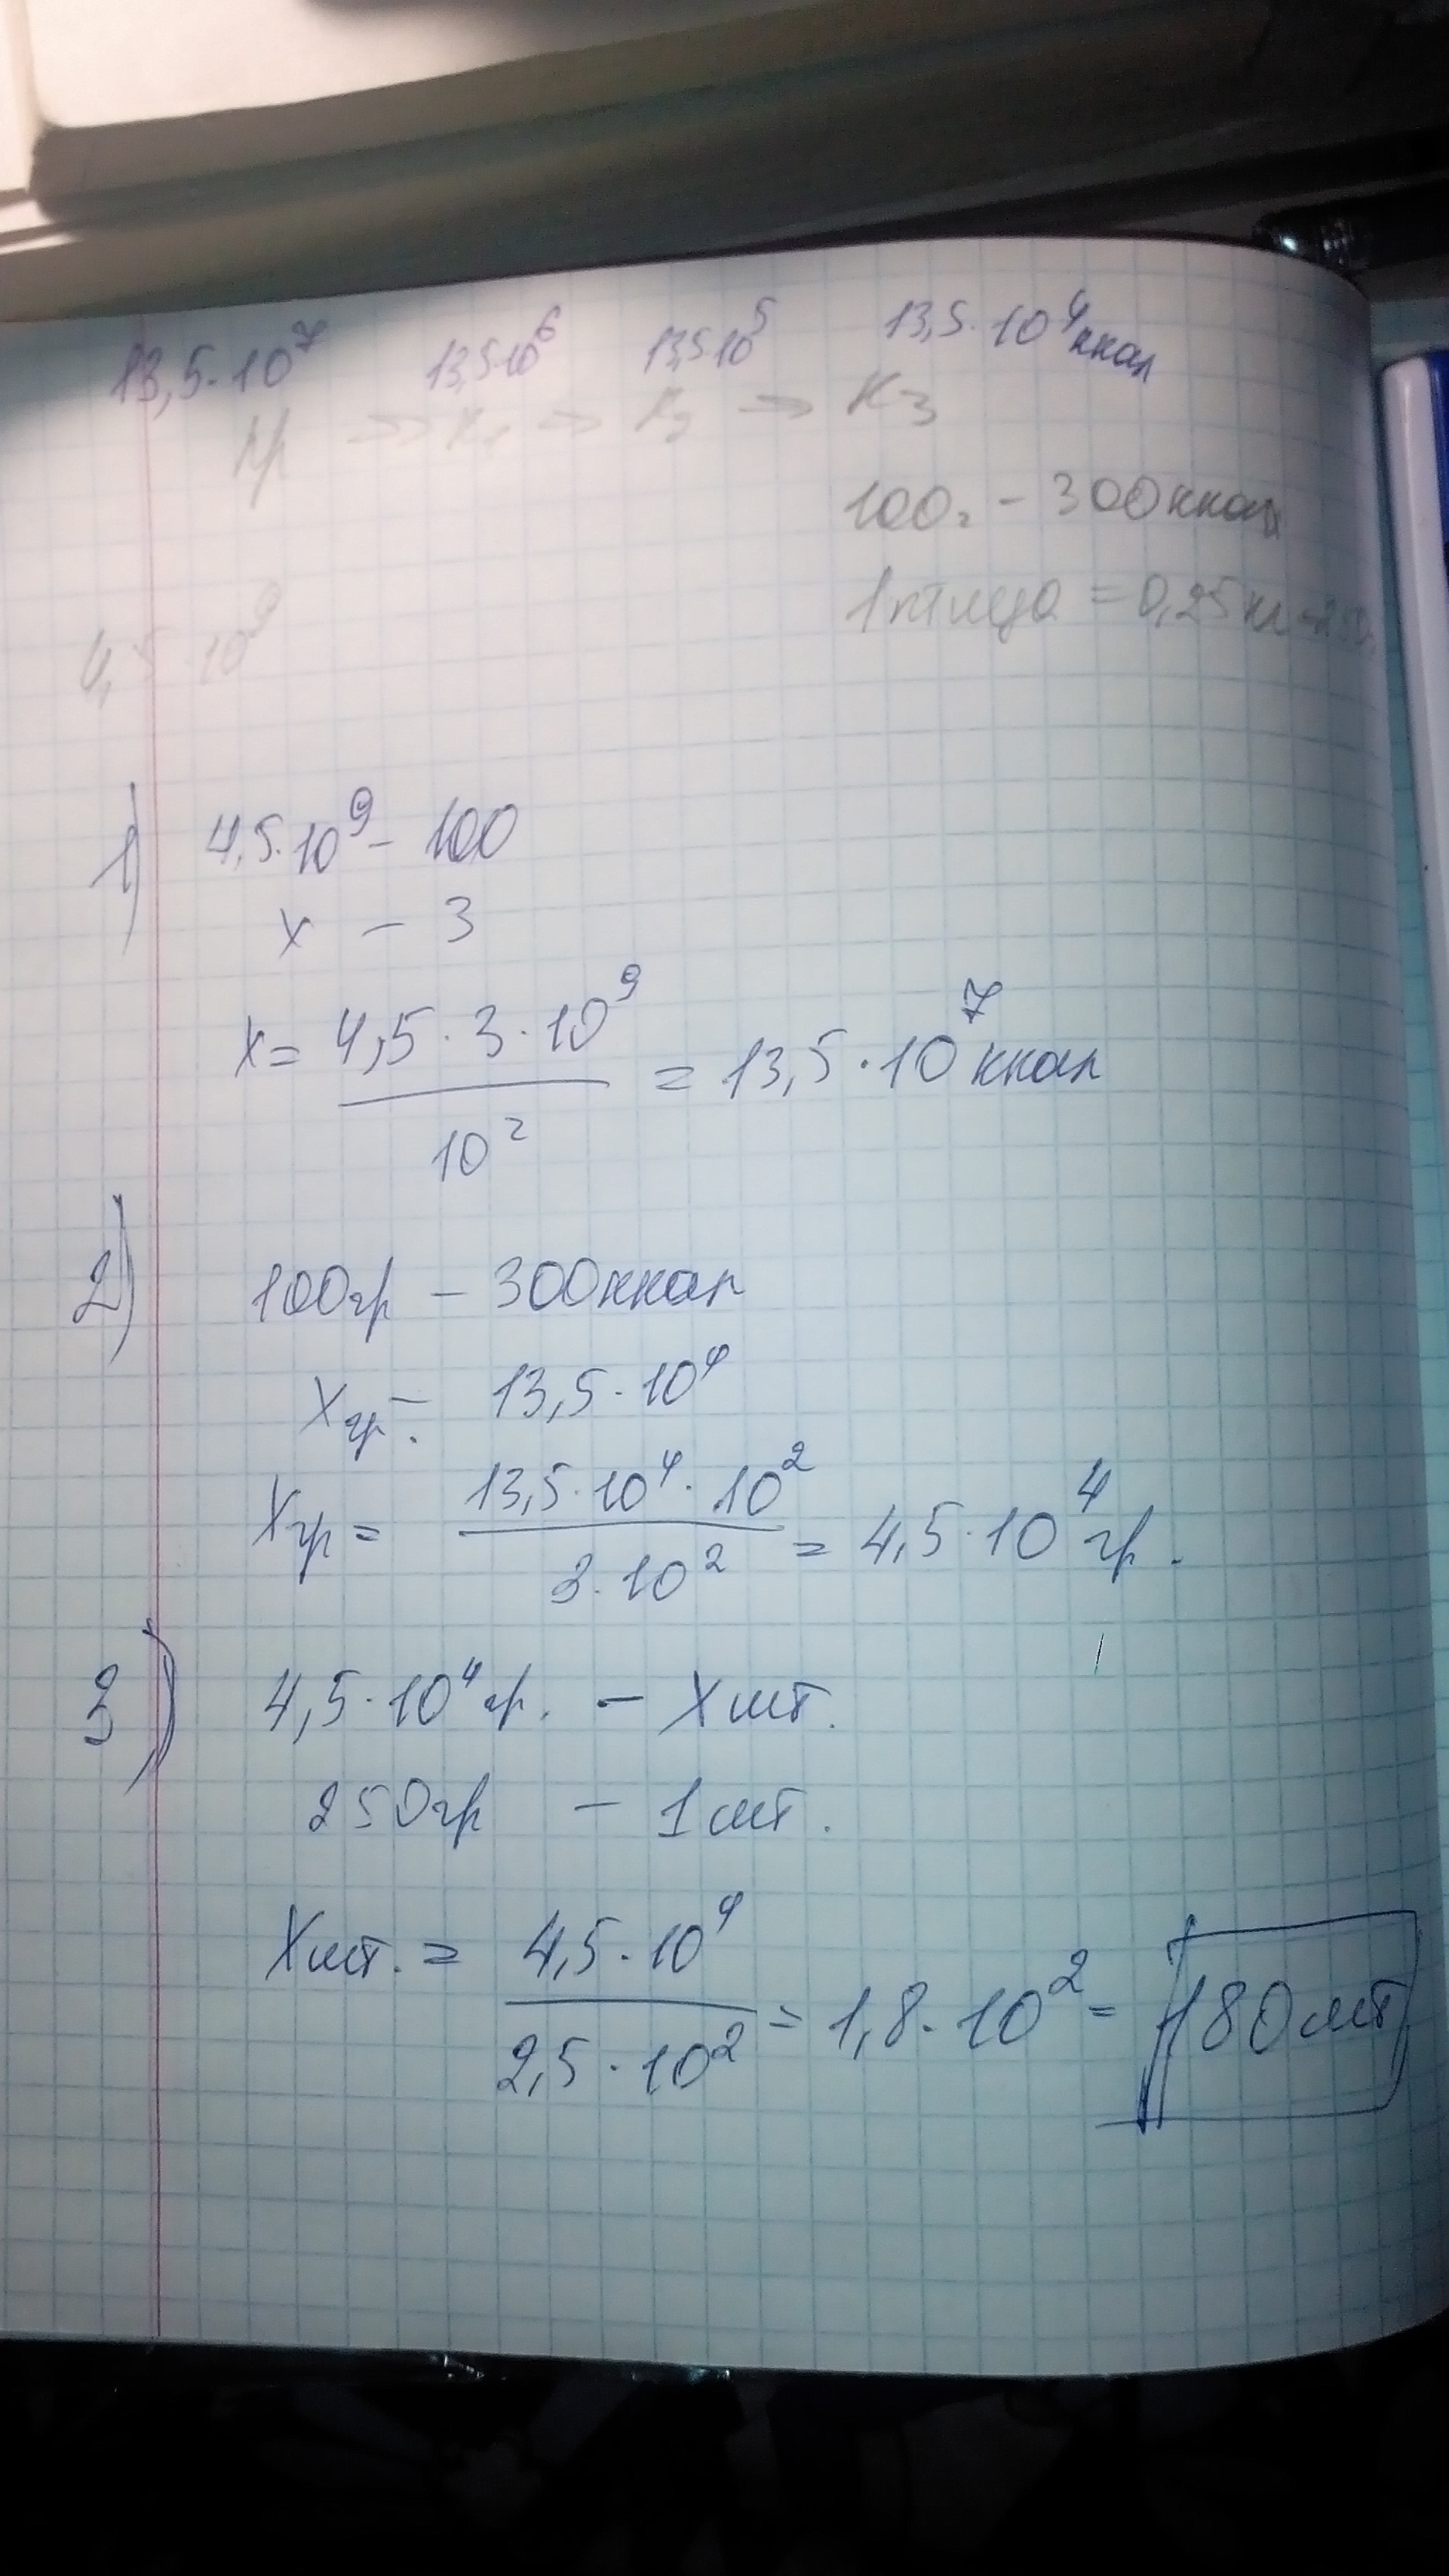 13,5·10⁷ 13,5·10⁶ 13,5·10⁵ 13,5·10⁴ ккал
Пр => К₁ => К₂ => К₃
100г - 300 ккал
1 птица = 0,25 кг = 250г
4,5·10⁹
1) 4,5·10⁹ - 100
х - 3
х = 4,5·3·10⁹ / 10² = 13,5·10⁷ ккал
2) 100гр - 300 ккал
Хгр. - 13,5·10⁴
Хгр = 13,5·10⁴·10² / 3·10² = 4,5·10⁴ гр.
3) 4,5·10⁴ гр. - Х шт.
250гр - 1 шт.
Хшт. = 4,5·10⁴ / 2,5·10² = 1,8·10² = 180 шт